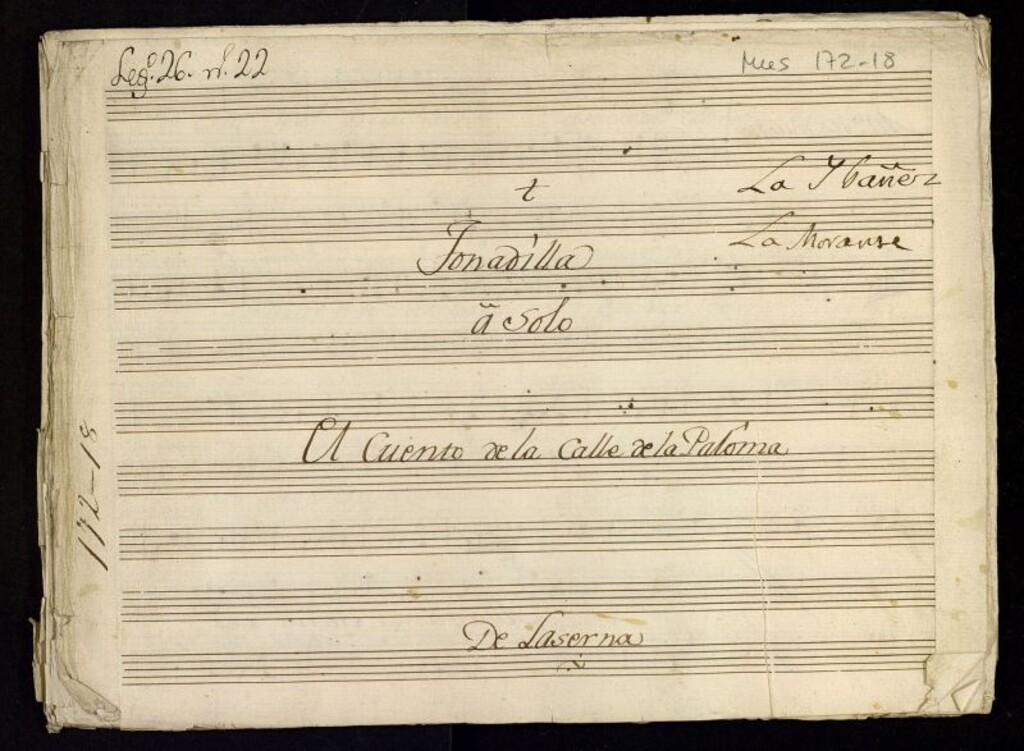 Leg.º 26. n.º 22
Mus 172-18
La Ybañez
t
La Morante
Tonadilla
a Solo
El Cuento de la Calle de la Paloma
172-18
De Laserna